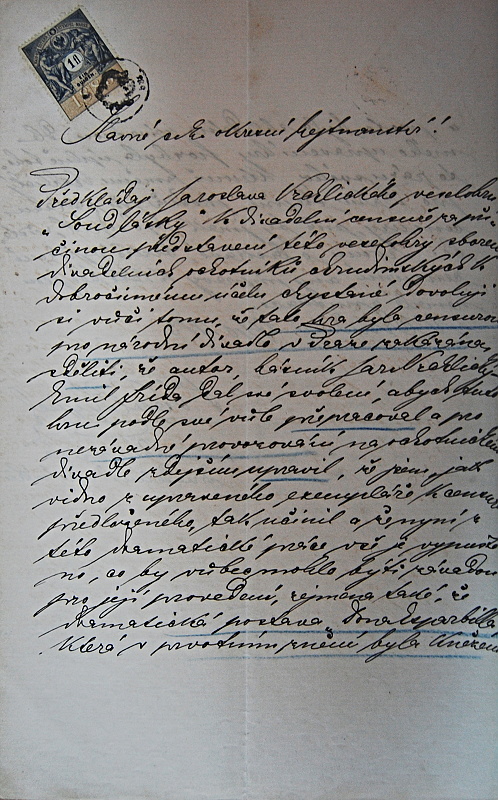 Slavné c.k. okresní hejtmanství!
Předkládaje Jaroslava Vrchlického veselohru
„Soud lásky" k divadelní censuře za pří-
činou představení této veselohry sborem
divadelních ochotníků chrudimských k
dobročinnému účelu chystané dovoluji
si vůči tomu, že tato hra byla censurou
pro národní divadlo v Praze zakázána,
sděliti, že autor, básník Jarosl. Vrchlický
Emil Frída dal své svolení, abych tuto
hru podle své vůle přepracoval a pro
nezávadné provozování na ochotnickém
divadle zdejším upravil, že jsem, jak
vidno z upraveného exempláře k censuře
předloženého, tak učinil a že nyní z
této dramatické práce vše je vypuště-
no, co by vůbec mohlo býti závadou
pro její provedení, zejména také, že
dramatická postava „Dona
která v prvotním znění byla knězem
10